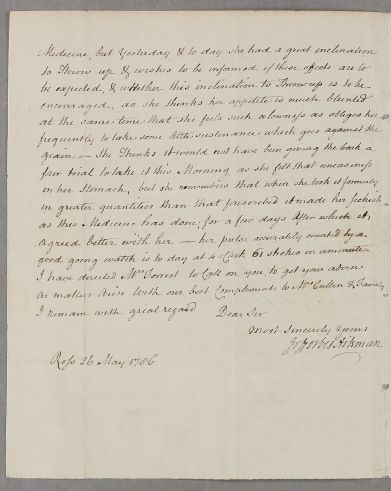 Medicine, but Yesterday & to day she had a great inclination
to Throw up & wishes to be informed if these effects are to
be expected, & whether this inclination to Throw up is to be
encouraged, as she thinks her appetite is much blunted
at the same time that she feels such a lowness as obliges her
frequently to take some little sustenance which goes against the
grain — she Thinks it would not have been giving the bark a
fair trial to take it this Morning as she felt that uneasiness
in her Stomach, but she remembers that when she took it formerly
in greater quantities than that prescribed it made her sickish
as this Medicine has done, for a few days After which it
agreed better with her — her pulse accurately counted by a
good going watch is to day at 4 o'Clock 61 strokes in a minute
I have directed Mr Forrest to Call on you to get your advice
as matters Arise With our best Complements to Mrs Cullen & Family
I remain with great regard Dear Sir
Most Sincerely Yours
Jo Forbes Aikman
Ross 26 May 1786